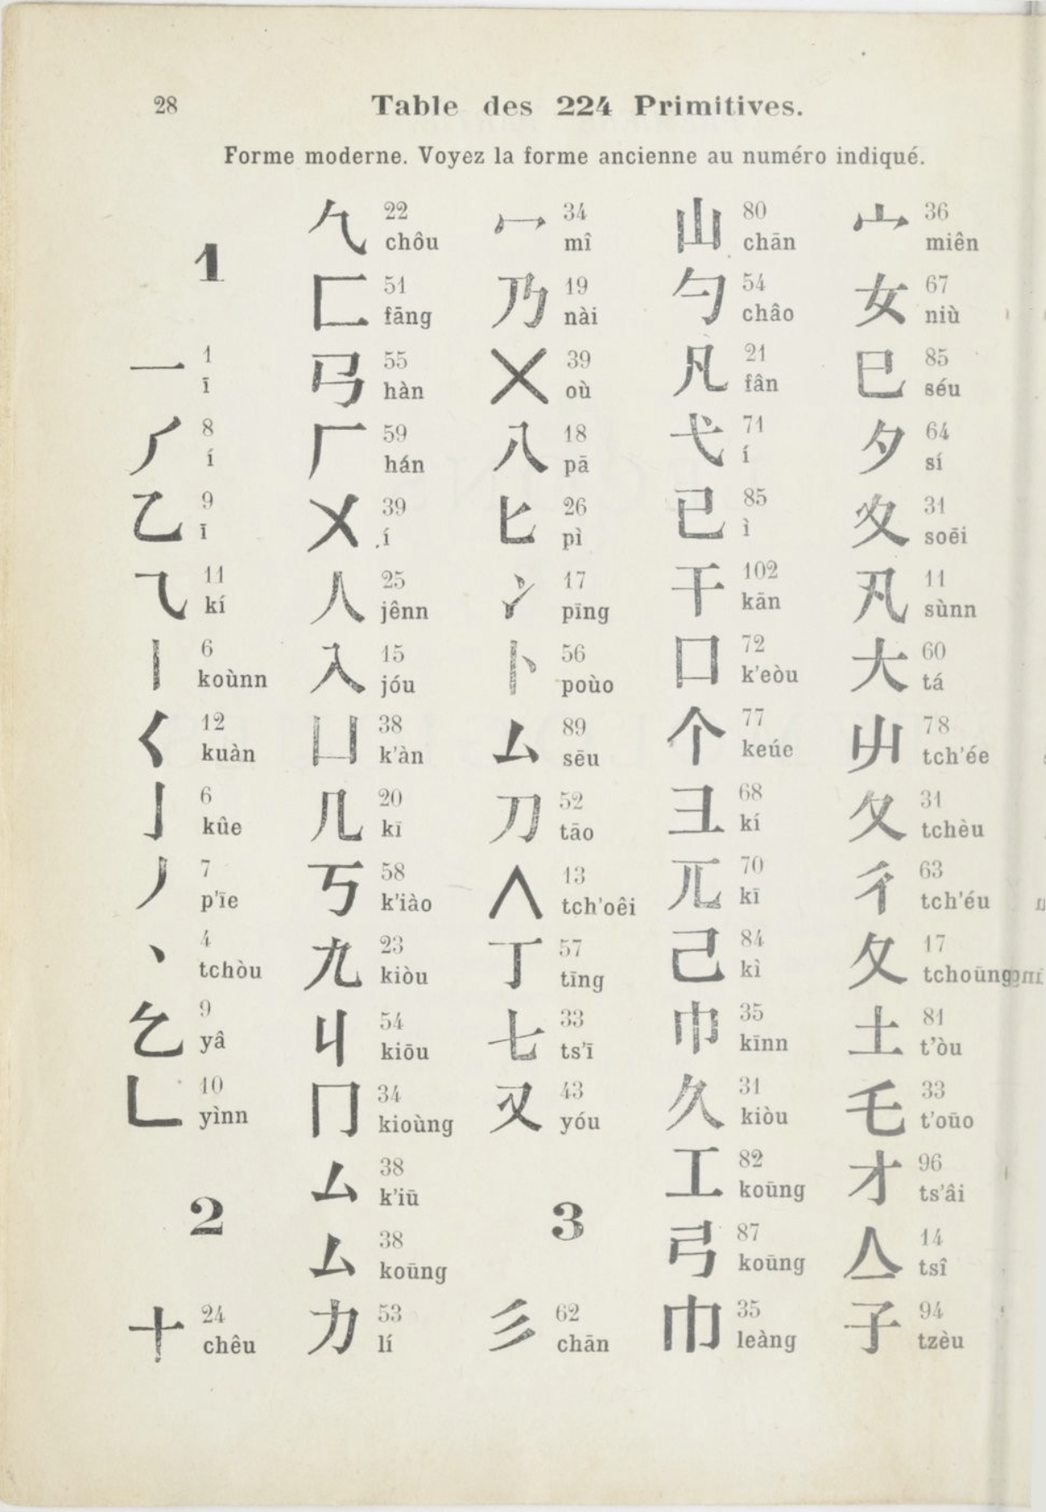 28
Table des 224 Primitives.
Forme moderne. Voyez la forme ancienne au numéro indiqué.
1
一 1 ī
8 í
乙 9 ī
⺄ 11 kí
丨 6 koùnn
く 12 kuàn
亅 6 kûe
丿 7 p'īe
丶 4 tchòu
9 yâ
𠃊 10 yìnn
2
十 24 chêu
22 chôu
匚 51 fāng
55 hàn
厂 59 hán
㐅 39 í
人 25 jênn
入 15 jóu
凵 38 k'àn
几 20 kī
丂 58 k'iào
九 23 kiòu
丩 54 kiōu
冂 34 kioùng
厶 38 k'iū
厶 38 koūng
力 53 lí
冖 34 mî
乃 19 nài
㐅 39 où
八 18 pā
匕 26 pì
冫 17 pīng
卜 56 poùo
厶 89 sēu
刀 52 tāo
13 tch'oêi
丁 57 tīng
七 33 ts'ī
又 43 yóu
3
彡 62 chān
山 80 chān
勺 54 châo
凡 21 fân
弋 71 í
已 85 ì
干 102 kān
口 72 k'eòu
个 77 keúe
彐 68 kí
丌 70 kī
己 84 kì
巾 35 kīnn
久 31 kiòu
工 82 koūng
弓 87 koūng
35 leàng
宀 36 miên
女 67 niù
巳 85 séu
夕 64 sí
夊 31 soēi
卂 11 sùnn
大 60 tá
屮 78 tch'ée
夂 31 tchèu
彳 63 tch'éu
夂 17 tchoūng
土 81 t'òu
乇 33 t'oūo
才 96 ts'âi
亼 14 tsî
子 94 tzèu